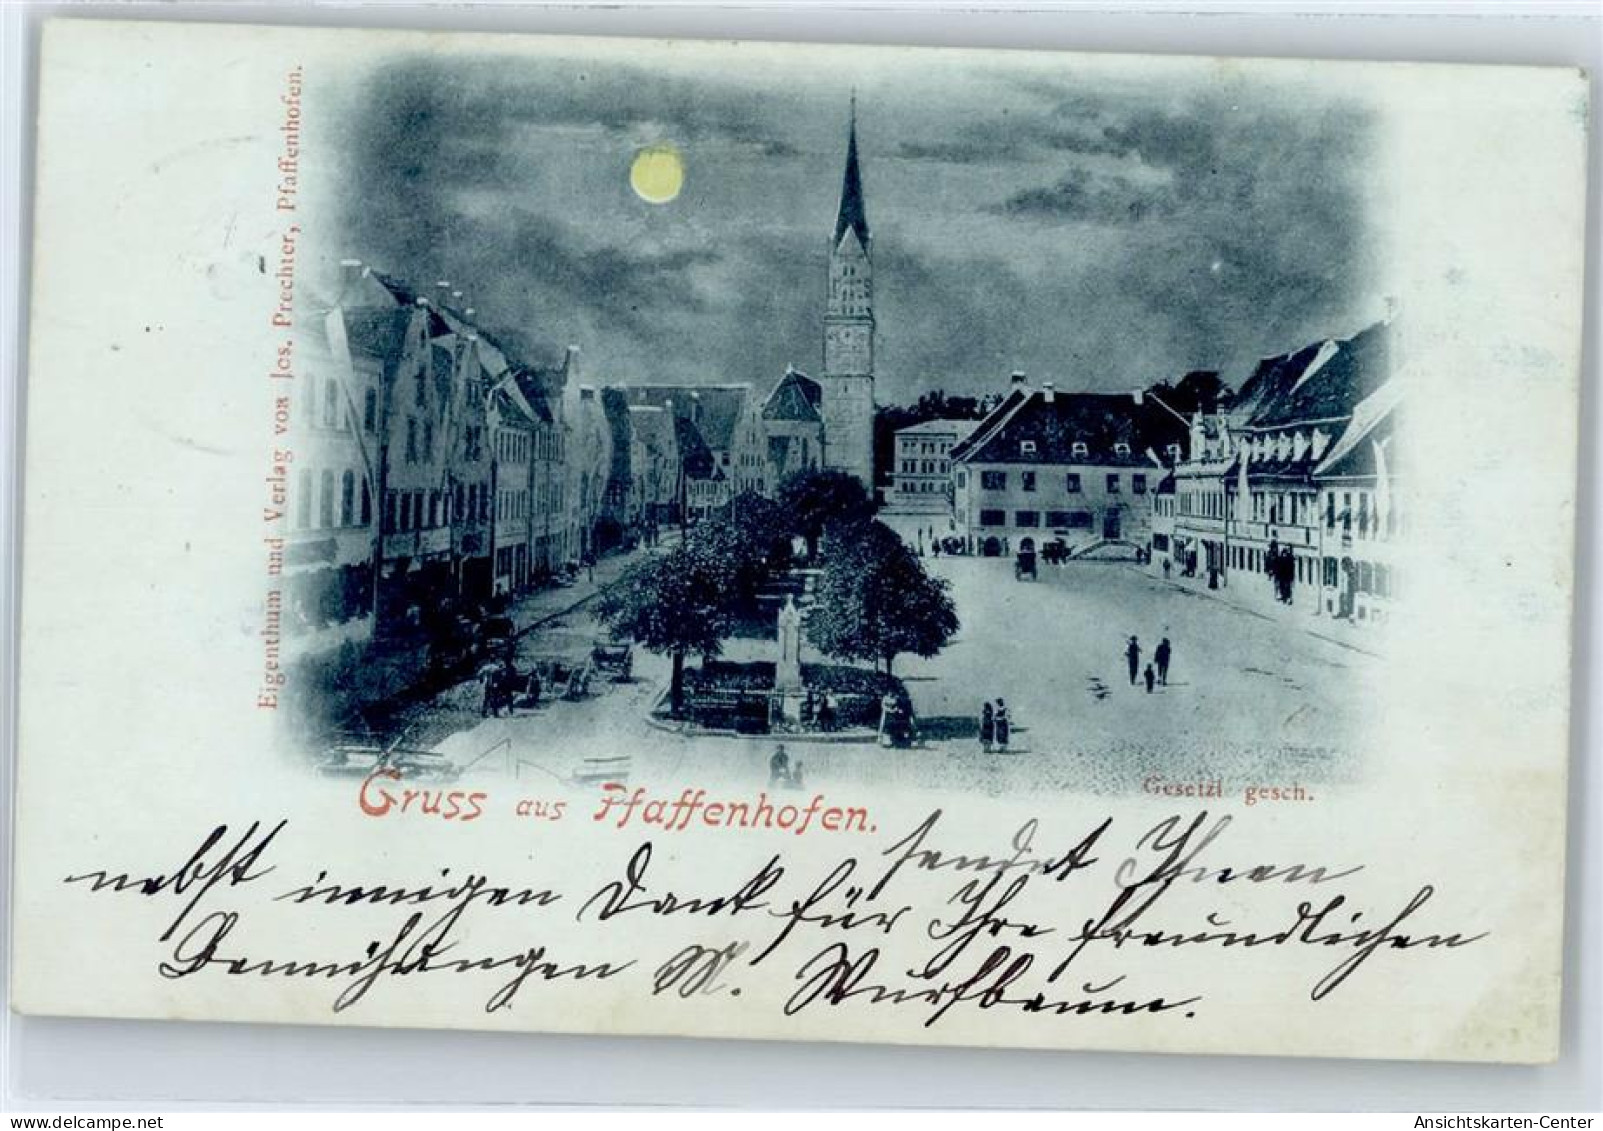 Eigenthum und Verlag von Jos. Prechter, Pfaffenhofen.
Gesetzl gesch.
Gruss aus Pfaffenhofen.
sendet Ihnen
nebst innigen Dank für Ihre freundlichen
Bemühungen M. Wurfbaum.
Ansichtskarten-Center